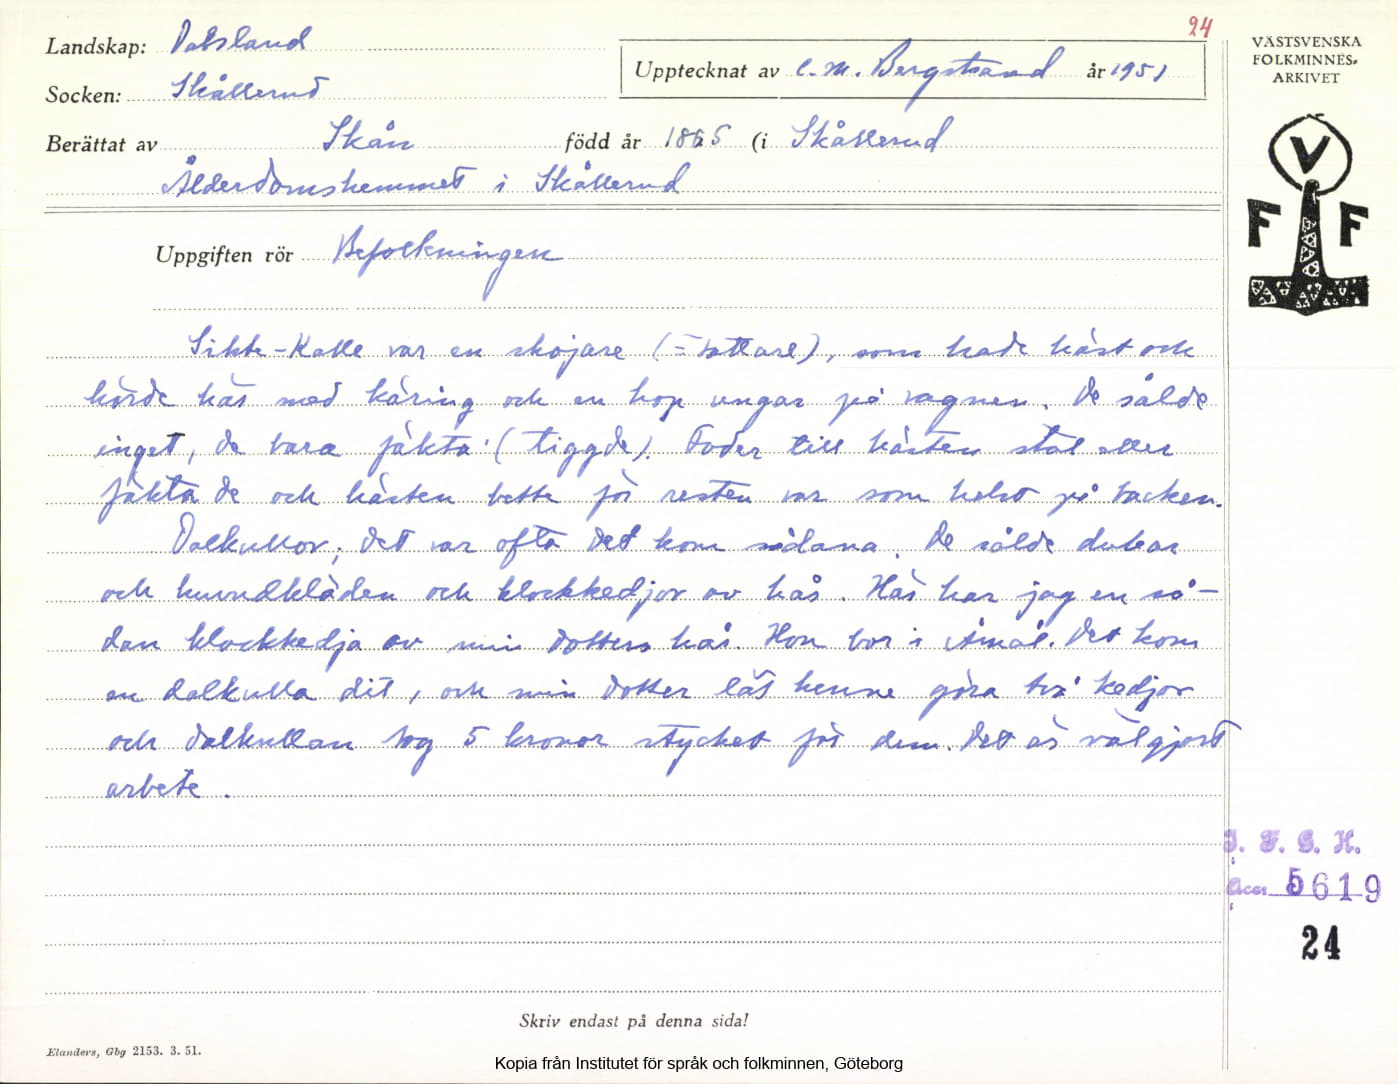 24
Landskap: Dalsland
Upptecknat av C. M. Bergstrand år 1951
Socken: Skållerud
Berättat av Skån född år 1865 (i Skållerud
Ålderdomshemmet i Skållerud
VÄSTSVENSKA
FOLKMINNES-
ARKIVET
V
F F
Uppgiften rör Befolkningen
Sikte-Kalle var en skojare (= tattare), som hade häst och
körde här med käring och en hop ungar på vagnen. De sålde
inget, de bara jäkta (tiggde). Foder till hästen stal eller
jäkta de och hästen bette för resten var som helst på backen.
Dalkullor, det var ofta det kom sådana. De sålde dukar
och huvudkläden och klockkedjor av hår. Här har jag en så-
dan klockkedja av min dotters hår. Hon bor i Åmål. Det kom
en dalkulla dit, och min dotter lät henne göra två kedjor
och dalkullan tog 5 kronor stycket för dem. Det är välgjort
arbete.
I. F. G. H.
Acc. 5619
24
Skriv endast på denna sida!
Elanders, Gbg 2153. 3. 51.
Kopia från Institutet för språk och folkminnen, Göteborg